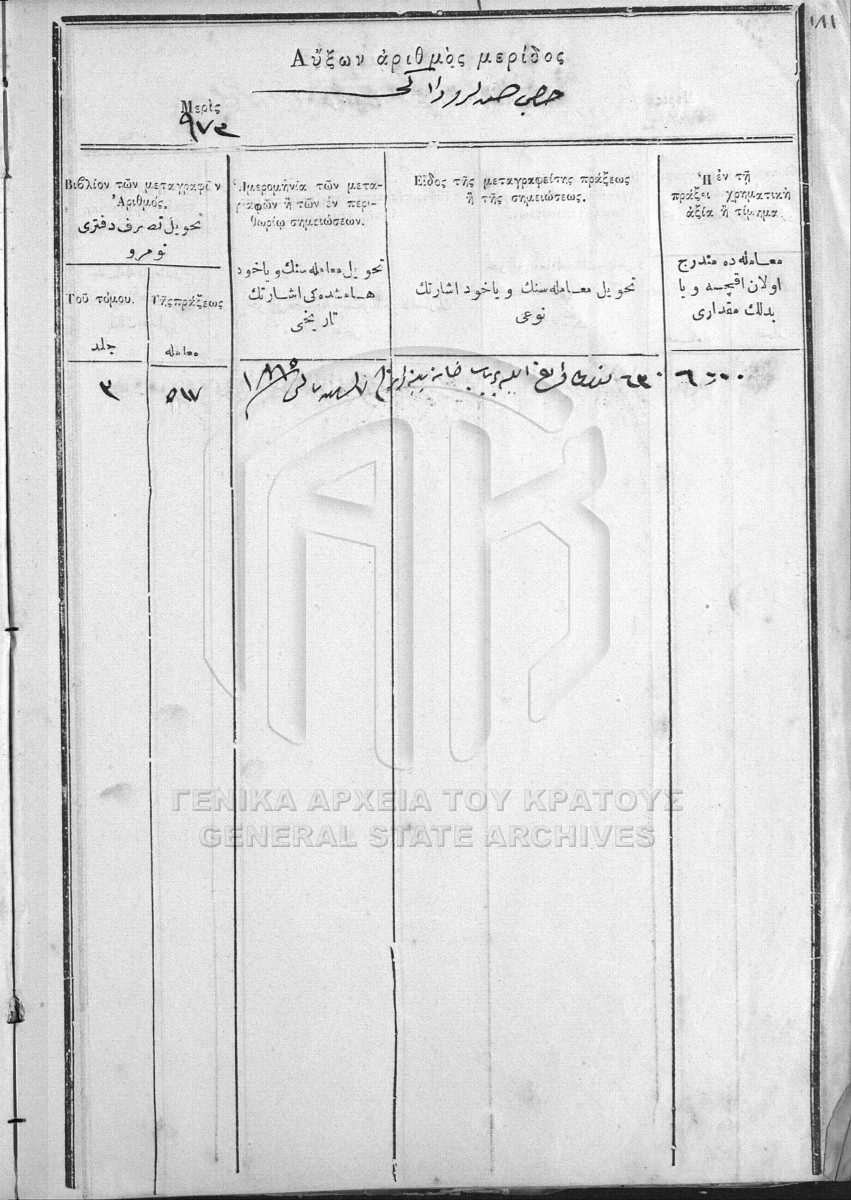 ١٨١
Αὔξων ἀριθμὸς μερίδος
Μερὶς
٩٧٤
Βιβλίον τῶν μεταγραφῶν
Ἀριθμός.
تحويل تصرف دفترى
نومرو
Τοῦ τόμου.
جلد
Τῆς πράξεως
معامله
Ἡμερομηνία τῶν μετα-
γραφῶν ἢ τῶν ἐν περι-
θωρίῳ σημειώσεων.
تحويل معامله سنك و ياخود
هامشده كى اشارتك
تاريخى
Εἶδος τῆς μεταγραφείσης πράξεως
ἢ τῆς σημειώσεως.
تحويل معامله سنك و ياخود اشارتك
نوعى
Ἡ ἐν τῇ
πράξει χρηματικὴ
ἀξία ἢ τίμημα
معامله ده مندرج
اولان اقچه و يا
بدلك مقدارى
٣
٥١٧
ΓΕΝΙΚΑ ΑΡΧΕΙΑ ΤΟΥ ΚΡΑΤΟΥΣ
GENERAL STATE ARCHIVES